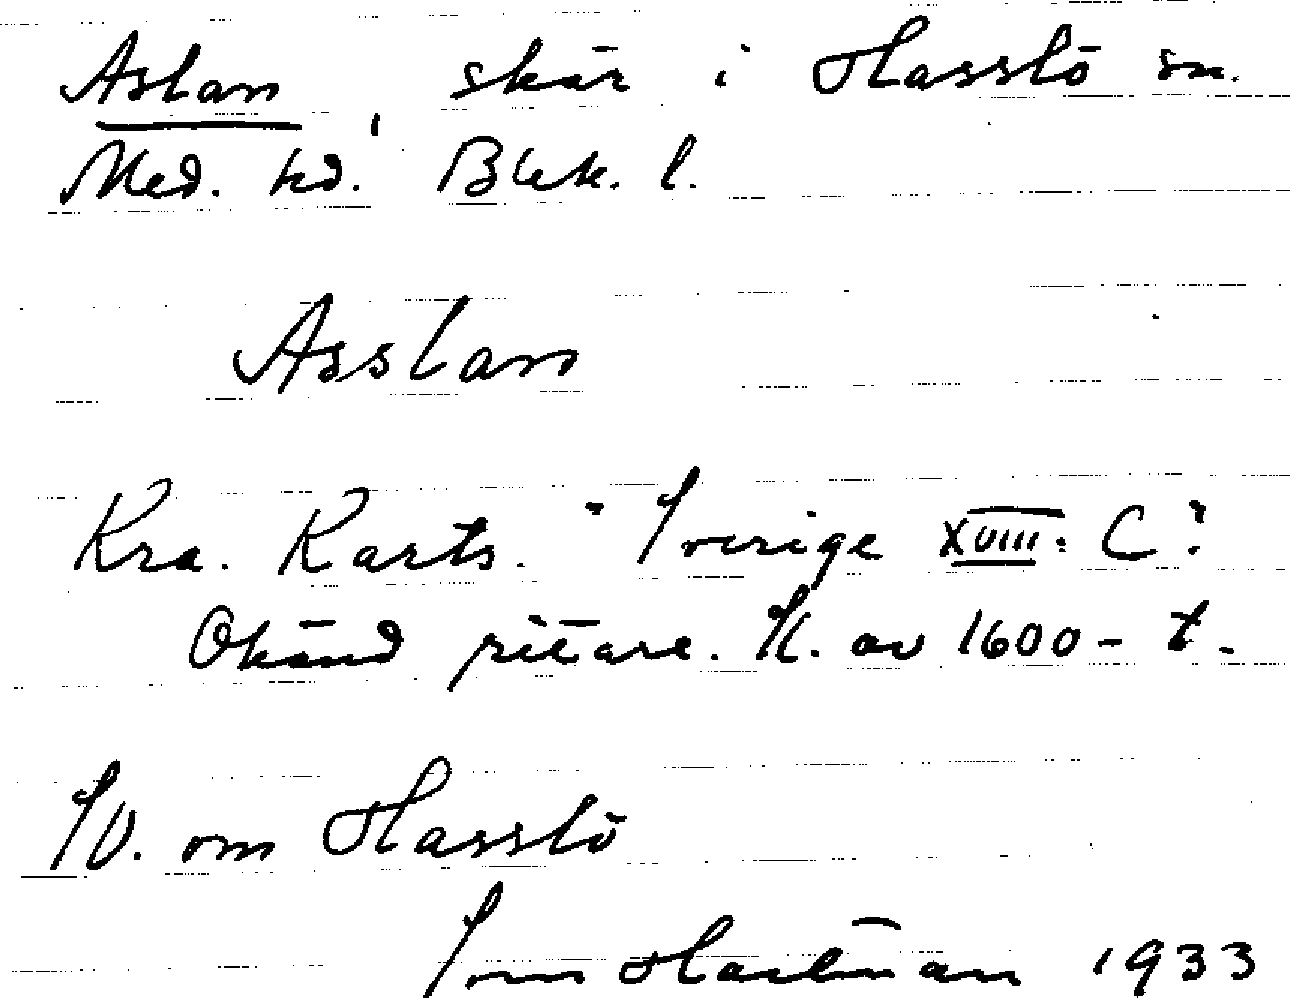 Aslan skär i Hasslö sn.
Med. hd. Blek. l.
Asslan
Kra. Karts. "Sverige XVIII. C"
Okänd ritare. K. av 1600-t.
SV. om Hasslö
Hartman 1933